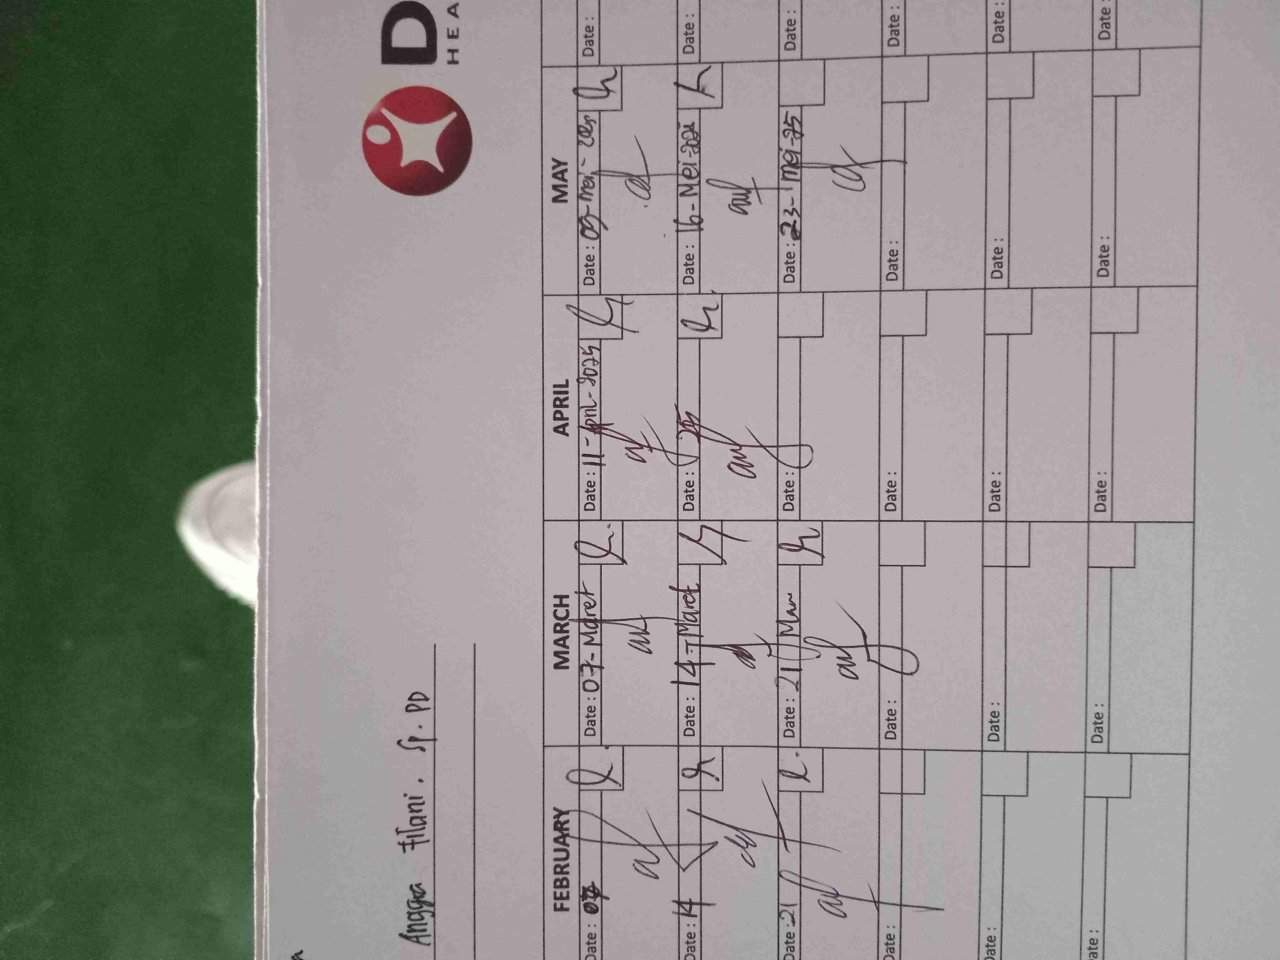 D
HEA
Angga Fitani. Sp. PD
FEBRUARY MARCH APRIL MAY
Date: 07 Date: 07-Maret Date: 11-April-2025 Date: 09-Mei- Date:
Date: 14 Date: 14-Maret Date: 25 Date: 16-Mei-202 Date:
Date: 21 Date: 21 Mar Date: Date: 23-Mei-25 Date:
Date: Date: Date: Date: Date:
Date: Date: Date: Date: Date:
ate: Date: Date: Date: Date: